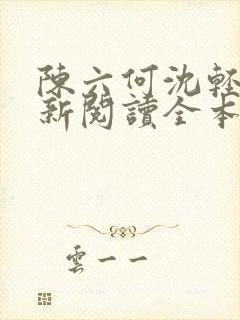 陳六何沈輕
新閱讀全本
雲一一